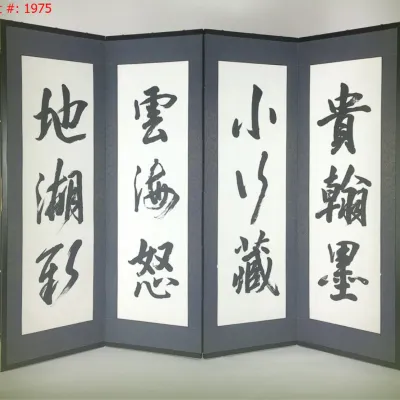 t #: 1975
貴翰墨
小行藏
雲海怒
地湖